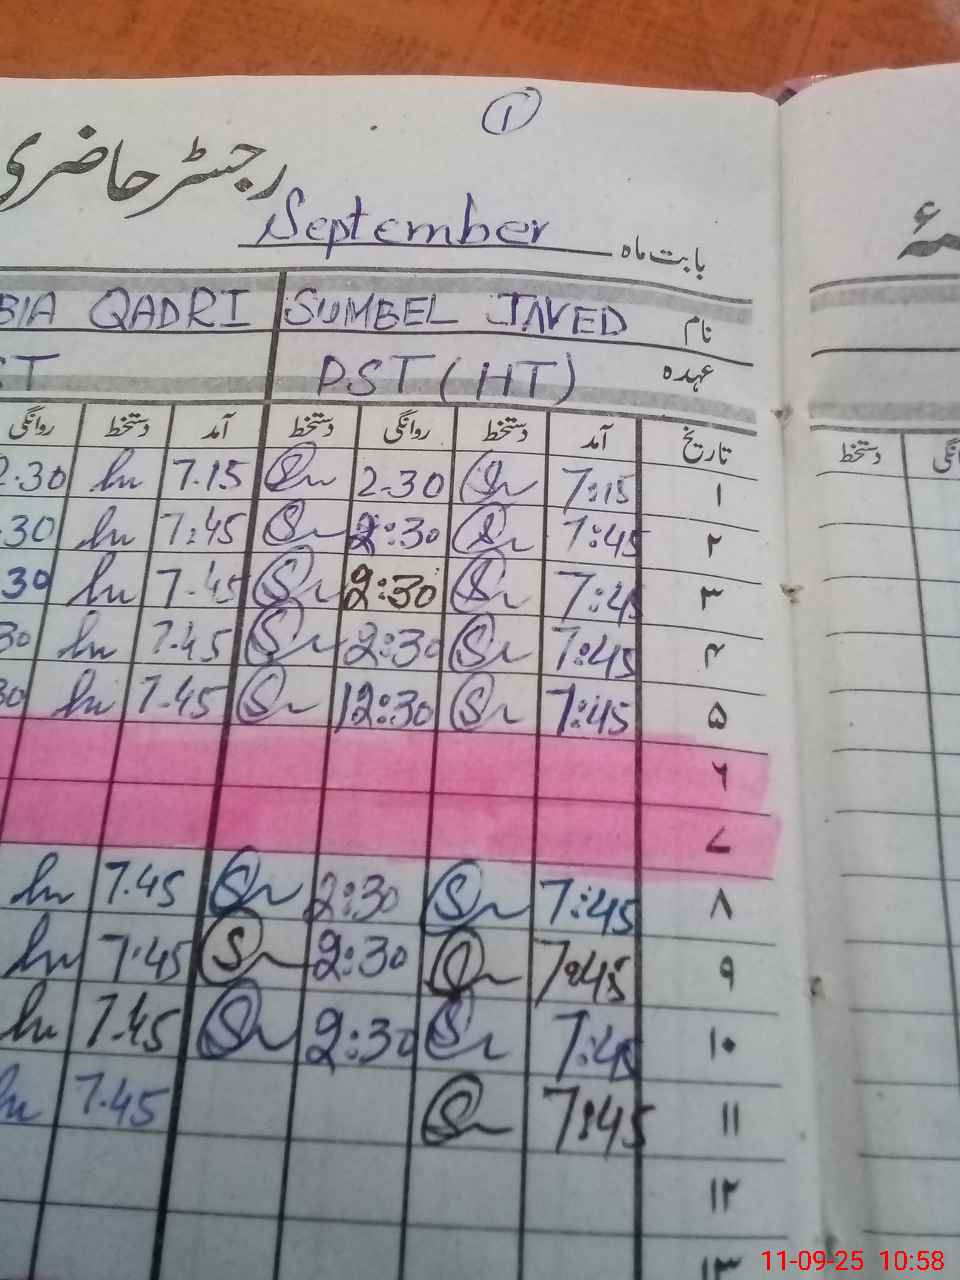 1
رجسٹر حاضری
بابت ماہ September
نام SUMBEL JAVED BIA QADRI
عہدہ PST (HT) ST
تاریخ آمد دستخط روانگی دستخط آمد دستخط روانگی
دستخط
۱ 7:15 2-30 7.15 2.30
۲ 7:45 2:30 7:45 .30
۳ 7:45 2:30 7.45 30
۴ 7:45 2:30 7.45 30
۵ 7:45 12:30 7.45 30
۶
۷
۸ 7:45 2:30 7.45
۹ 7:45 2:30 7.45
۱۰ 7:45 2:30 7.45
۱۱ 7:45 7.45
۱۲
۱۳
11-09-25 10:58